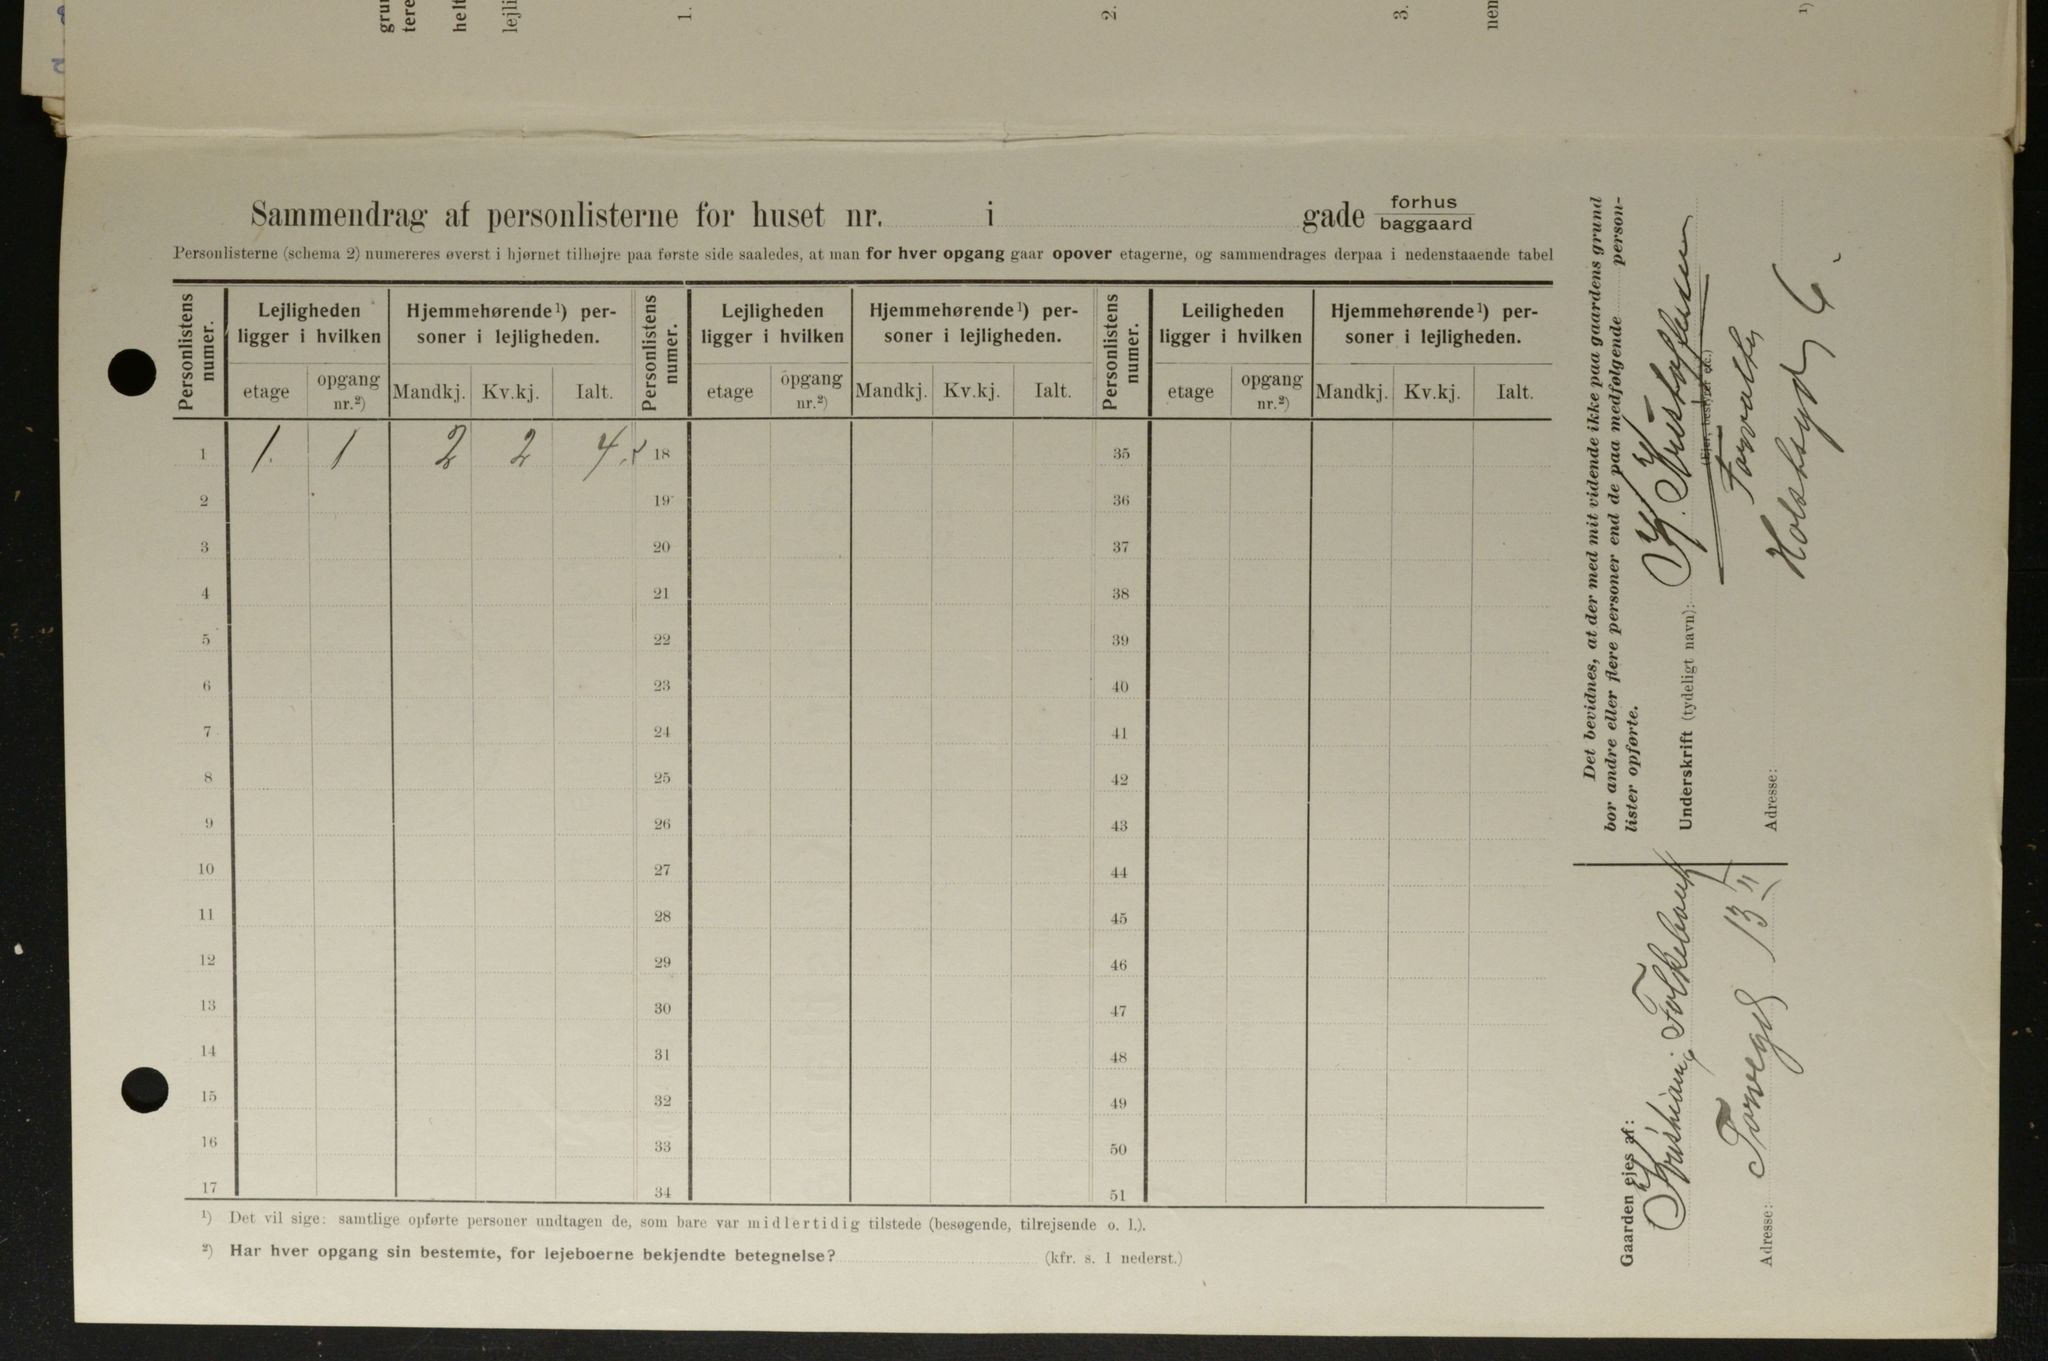 grun
tere
helt
lejli
1.
2.
3.
nem
1)
Sammendrag af personlisterne for huset nr. i gade forhus
baggaard
Personlisterne (schema 2) numereres øverst i hjørnet tilhøjre paa første side saaledes, at man for hver opgang gaar opover etagerne, og sammendrages derpaa i nedenstaaende tabel
Personlistens numer. Lejligheden ligger i hvilken Hjemmehørende¹) personer i lejligheden. Personlistens numer. Lejligheden ligger i hvilken Hjemmehørende¹) personer i lejligheden. Personlistens numer. Leiligheden ligger i hvilken Hjemmehørende¹) personer i lejligheden.
etage opgang nr.²) Mandkj. Kv.kj. Ialt. etage opgang nr.²) Mandkj. Kv.kj. Ialt. etage opgang nr.²) Mandkj. Kv.kj. Ialt.
1 1. 1 2 2 4. 18 35
2 19 36
3 20 37
4 21 38
5 22 39
6 23 40
7 24 41
8 25 42
9 26 43
10 27 44
11 28 45
12 29 46
13 30 47
14 31 48
15 32 49
16 33 50
17 34 51
¹) Det vil sige: samtlige opførte personer undtagen de, som bare var midlertidig tilstede (besøgende, tilrejsende o. l.).
²) Har hver opgang sin bestemte, for lejeboerne bekjendte betegnelse? (kfr. s. 1 nederst.)
Det bevidnes, at der med mit vidende ikke paa gaardens grund
bor andre eller flere personer end de paa medfølgende person-
lister opførte.
Underskrift (tydeligt navn): H. Kristoffersen
(Ejer, bestyrer etc.)
Forvalter
Adresse: Holstsgd 6.
Gaarden ejes af:
Kristiania Folkebank
Adresse: Torvegd 13 II